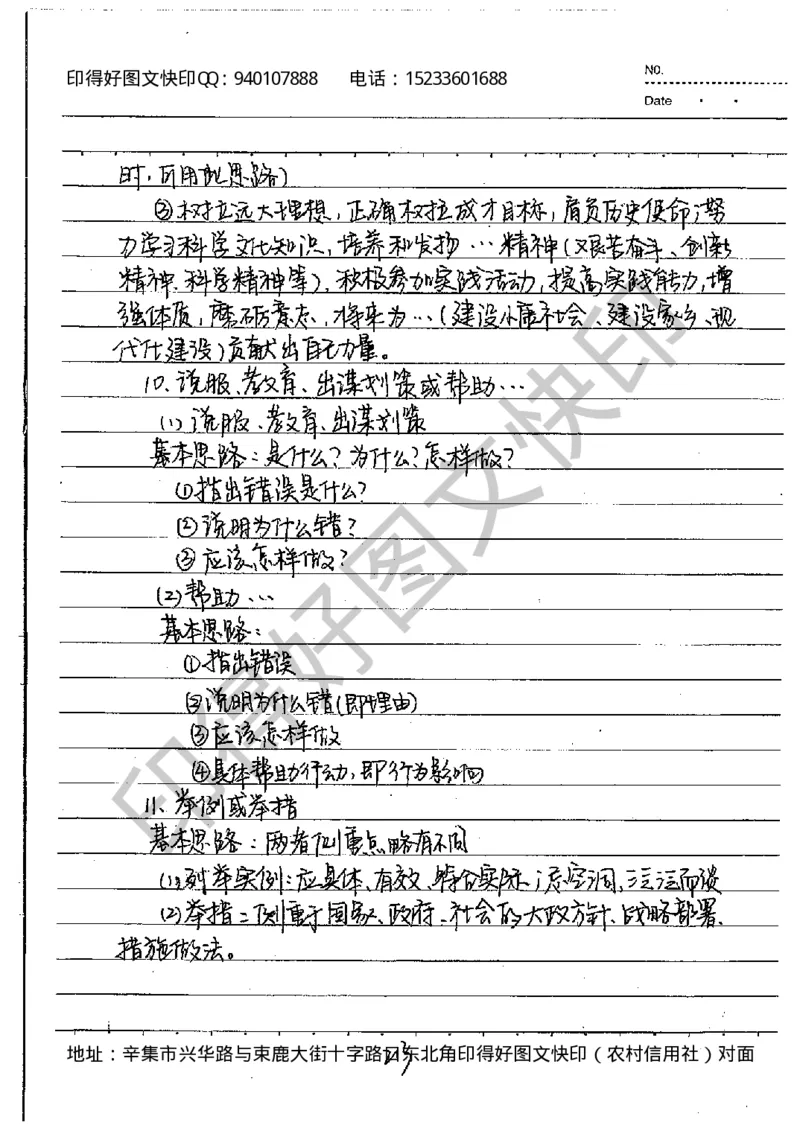 印得好图文快印QQ：940107888 电话：15233601688
NO.
Date
时，可用此思路）
③树立远大理想，正确树立成才目标，肩负历史使命；努
力学习科学文化知识，培养和发扬…精神（艰苦奋斗、创新
精神、科学精神等），积极参加实践活动，提高实践能力，增
强体质，磨砺意志，将来为…（建设小康社会、建设家乡、现
代化建设）贡献出自己力量。
10、说服、教育、出谋划策或帮助…
(1)说服、教育、出谋划策
基本思路：是什么？为什么？怎样做？
①指出错误是什么？
②说明为什么错？
③应该怎样做？
(2)帮助…
基本思路：
①指出错误
②说明为什么错（即理由）
③应该怎样做
④具体帮助行动，即行为影响
11、举例或举措
基本思路：两者侧重点略有不同
(1)列举实例：应具体、有效、符合实际；忌空洞、泛泛而谈
(2)举措：侧重于国家、政府、社会的大政方针、战略部署、
措施做法。
地址：辛集市兴华路与束鹿大街十字路口东北角印得好图文快印（农村信用社）对面
印得好图文快印